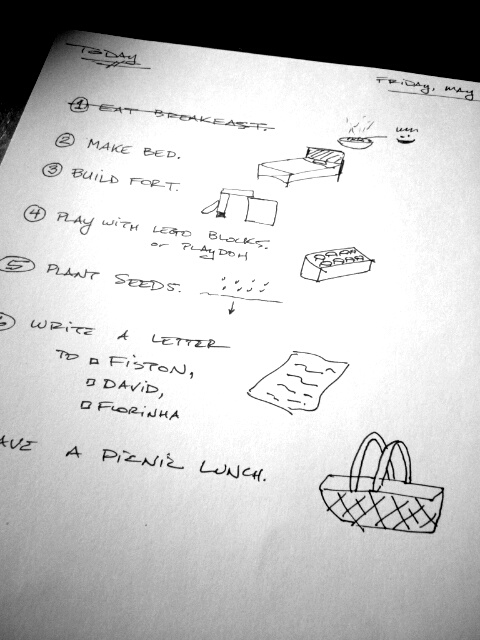 TODAY
FRIDAY, MAY
① EAT BREAKFAST.
② MAKE BED.
③ BUILD FORT.
④ PLAY WITH LEGO BLOCKS.
or PLAYDOH
⑤ PLANT SEEDS.
⑥ WRITE A LETTER
TO □ FISTON,
□ DAVID,
□ FLORINHA
AVE A PICNIC LUNCH.